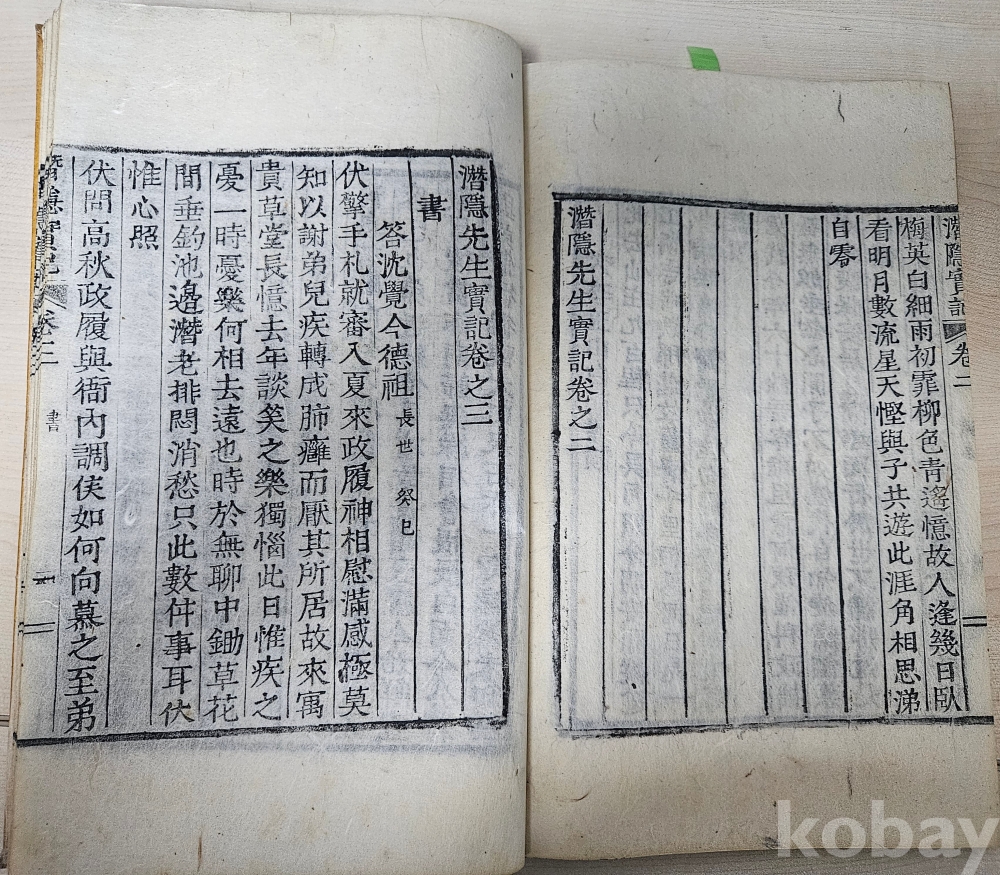 潛隱實記 卷二
梅英白細雨初霏柳色青遙憶故人逢幾日臥
看明月數流星天慳與子共遊此涯角相思涕
自零
潛隱先生實記卷之二
潛隱先生實記卷之三
書
答沈覺今德祖 長世 癸巳
伏擎手札就審入夏來政履神相慰滿感極莫
知以謝弟兒疾轉成肺癰而厭其所居故來寓
貴草堂長憶去年談笑之樂獨惱此日惟疾之
憂一時憂樂何相去遠也時於無聊中鋤草花
間垂釣池邊潛老排悶消愁只此數件事耳伏
惟心照
伏問高秋政履與衙內調候如何向慕之至弟
潛隱實記 卷三 書
kobay